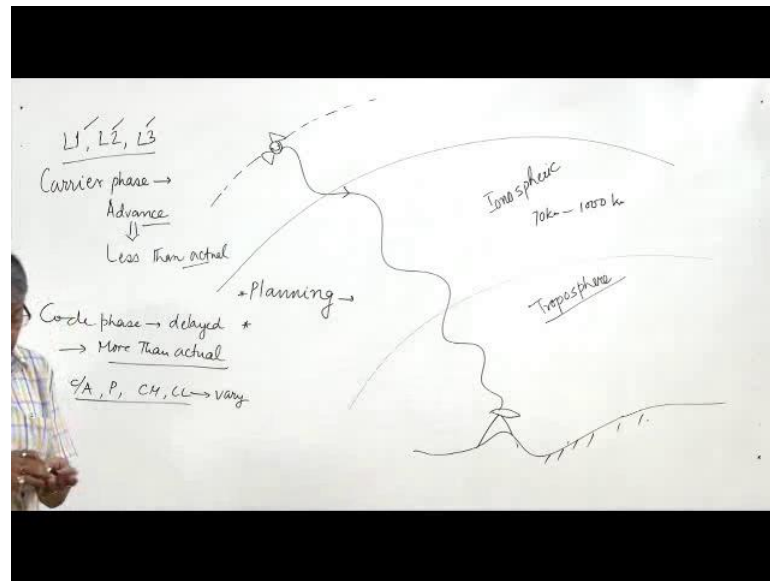 L1, L2, L3
Carrier phase →
Advance
⇓
Less Than actual
*Planning →
Code phase → delayed *
→ More Than actual
C/A, P, CM, CL → vary
Ionospheric
70km – 1000 km
Troposphere